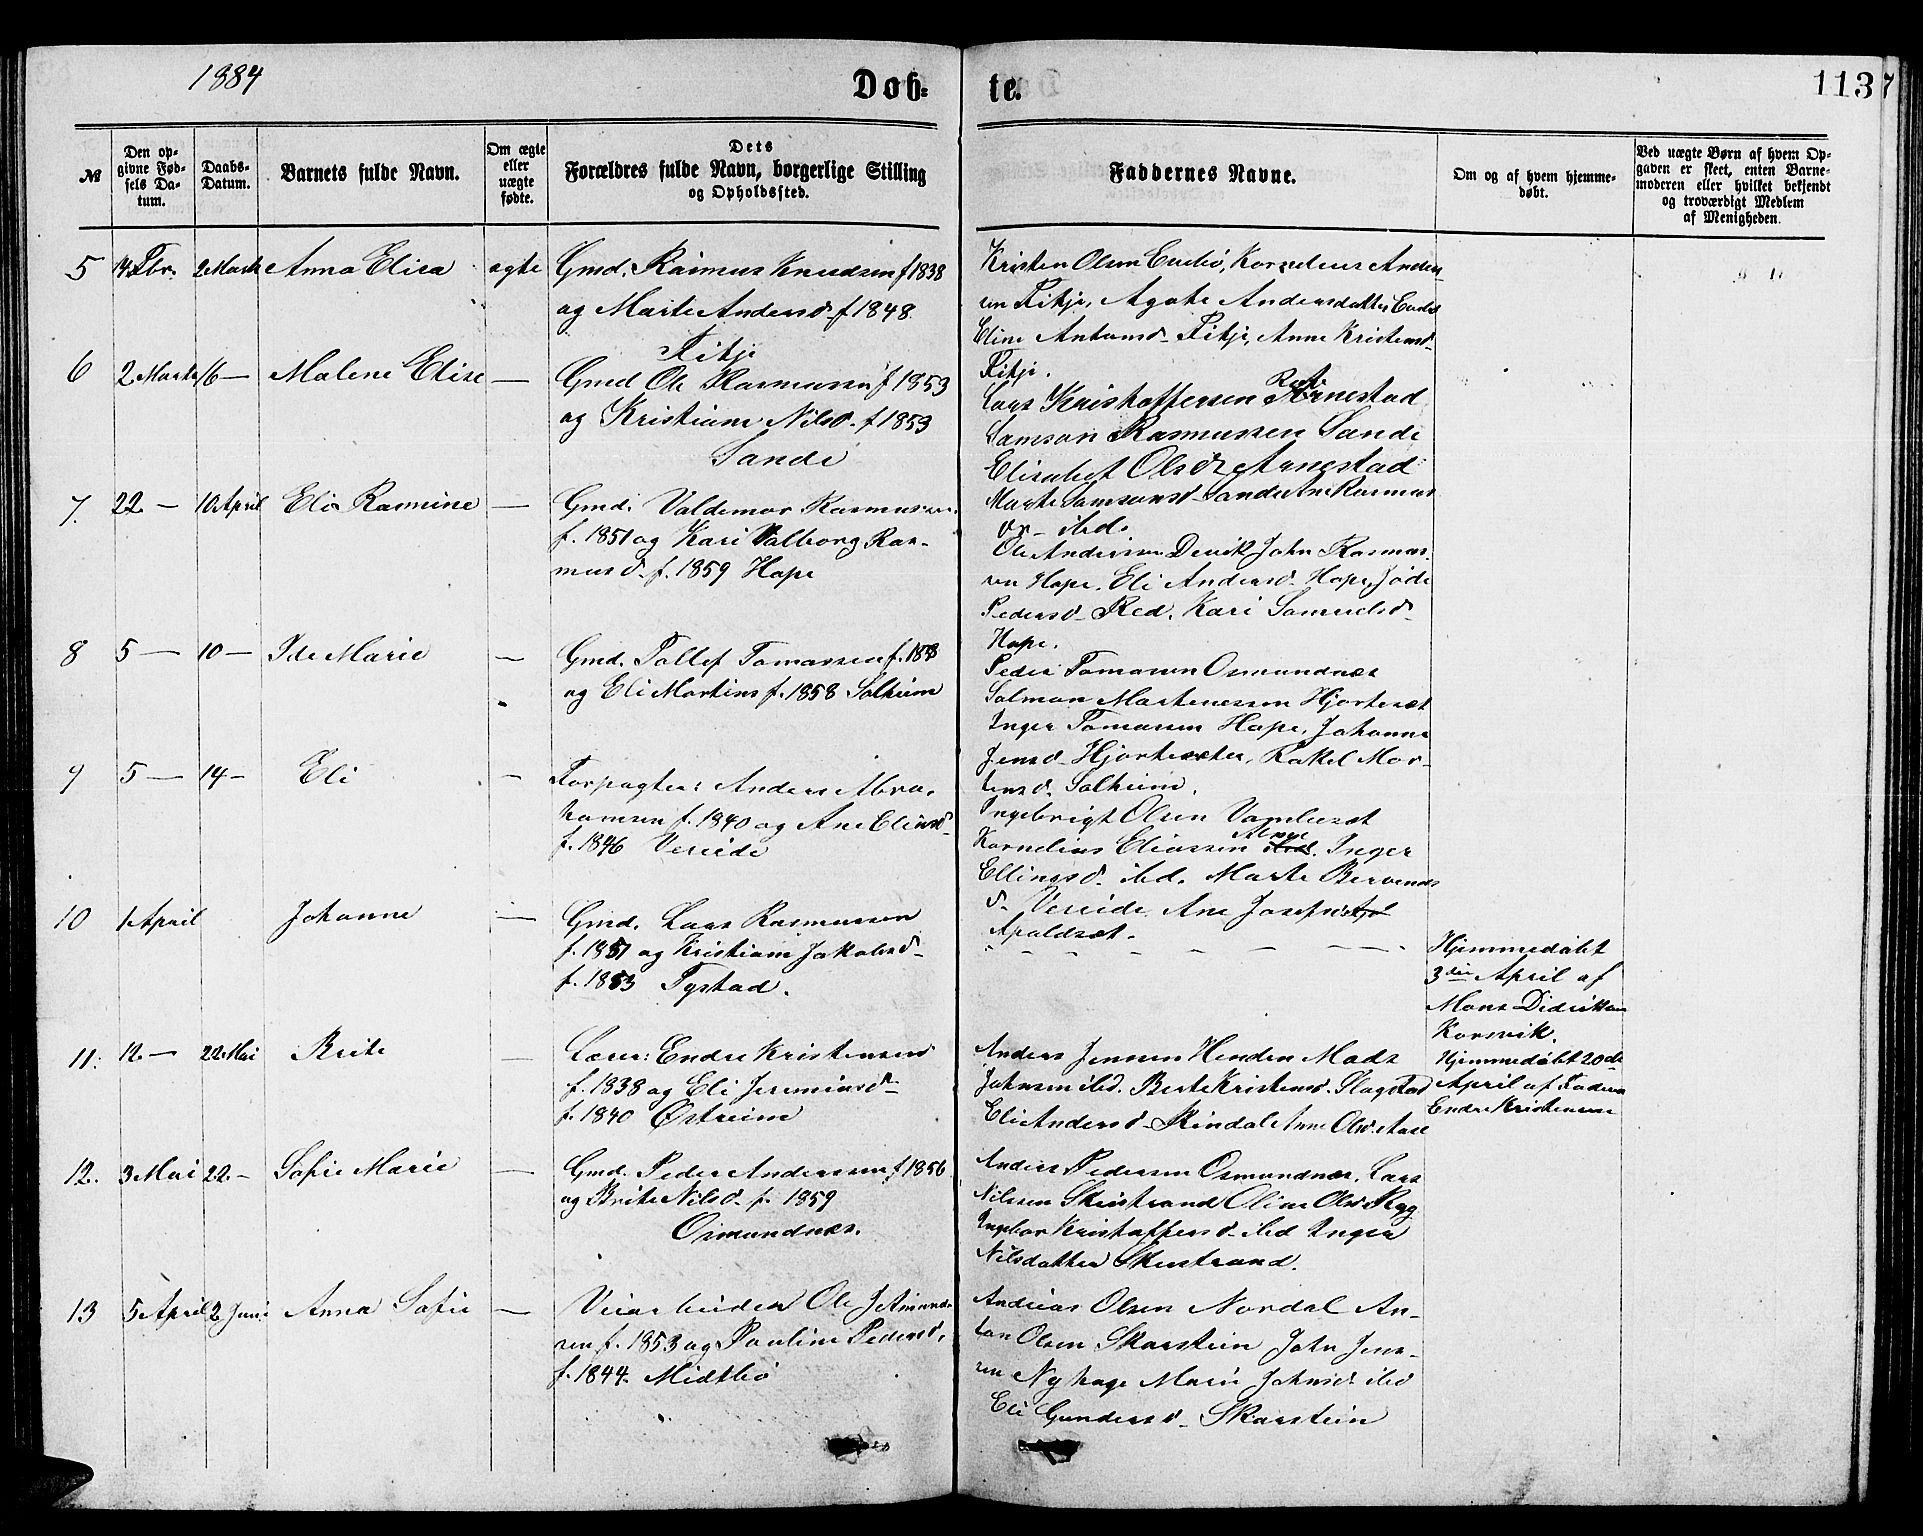 1884
Døb-
te.
113
№
Den op-
givne Fød-
sels Da-
tum.
Daabs-
Datum.
Barnets fulde Navn.
Om ægte
eller
uægte
fødte.
Dets
Forældres fulde Navn, borgerlige Stilling
og Opholdssted.
Faddernes Navne.
Om og af hvem hjemme-
døbt.
Ved uægte Børn af hvem Op-
gaven er skeet, enten Barne-
moderen eller hvilket bekjendt
og troværdigt Medlem
af Menigheden.
5 Fbr. 2 Marts Anna Elisa ægte
Gmd. Rasmus Knudsen f 1838
og Marte Andersd. f 1848
Kristen Olsen Kornelius Ander
sen Fitje, Agate Andersdatter
Eline Antonsd. Fitje, Anne Kristensd.
Fitje.
6 2 Marts 16 — Malene Elise —
Fitje
Gmd Ole Rasmussen f 1853
og Kristiane Nilsd. f 1853
Sande
Lars Kristoffersen Arnestad
Samson Rasmussen Sande
Elisabet Olsdr Arnestad
Marte Samsonsd. Sande Ane Rasmus
dr — ibd.
7. 22 — 10 April Eli Rasmine —
Gmd. Valdemar Rasmussen
f. 1851 og Kari Valborg Ras-
musd. f. 1859 Hope
Ole Andersen Devik John Rasmus
sen Hope. Eli Andersd. Hope,
Pedersd. Red. Kari Samuelsd.
Hope.
8 5 — 10 — Ide Marie —
Gmd. Tollef Tomassen f.
og Eli Martins f. 1858 Solheim
Peder Tomassen Osmundnæs
Salmon Martenessen Hjorteset
Inger Tomassen Hope, Johanne
Jensd. Hjorteseter, Rakel Mor-
tensd. Solheim.
9 5 — 14 — Eli —
Forpagter: Anders Abra-
hamsen f. 1840 og Ane Eliasd.
f. 1846 Vereide
Ingebrigt Olsen
Kornelius Eliassen Inger
Ellingsd. ibd. Marte
d. Vereide, Ane Josefsd
Apaldset.
10 1 April Johanne —
Gmd. Lars Rasmussen
f. 1851 og Kristiane Jakobsd.
f. 1853 Tystad.
Hjemmedøbt
3die April af
Mons Didriksen
Korsvik.
11. 12 — 22 Mai Brite —
Lærer: Endre Kristensen
f. 1838 og Eli Jeremiasd.
f. 1840 Østreim
Anders Jensen Henden Mads
Johnsen ibd. Berte Kristensd. Flagstad
Eli Andersd. Rindal Anne Olsd. Aase
Hjemmedøbt 20de
April af Faderen
Endre Kristensen
12. 3 Mai 22 — Sofie Marie —
Gmd. Peder Anderssen f 1856
og Brite Nilsd. f. 1859
Osmundnæs.
Anders Pedersen Osmundnæs, Lars
Nilssen Skeistrand Oline Olsd. Ryg
Ingebor Kristoffersd. ibd Inger
Nilsdatter Skeistrand.
13 5 April 2 Juni Anna Sofie —
Veiarbeider Ole J. Amund-
sen f. 1853 og Pauline Pedersd.
f. 1844. Midtbø
Andreas Olsen Nordal An-
ton Olsen Skarstein John Jens-
sen Nyhage Marie Johnsd ibd
Eli Gundersd. Skarstein